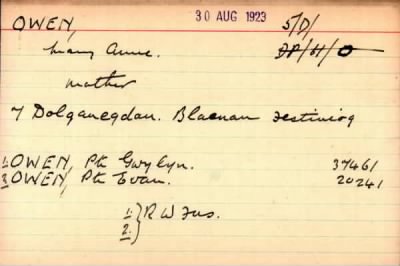 OWEN, 30 AUG 1923 5/D/
Mary Anne. DP/H/O
Mother
7 Dolganegdan. Blaenau Festiniog
1. OWEN, Pte Gwylyn. 37461
2. OWEN, Pte Evan. 20241
1.} R W Fus.
2.}